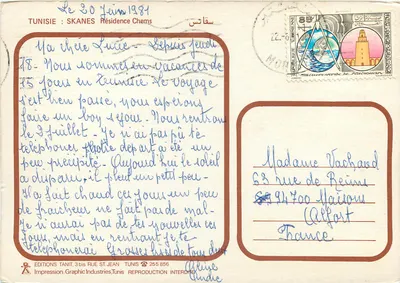 Le 20 Juin 1981
TUNISIE : SKANES Résidence Chams
سقانس
Ma chère Lucie - Depuis jeudi
18 - Nous sommes en vacances de
15 jours en Tunisie Le voyage
s'est bien passé, nous espérons
faire un bon séjour. Nous rentrons
le 3 juillet. Je n'ai pas pû te
téléphoner notre départ a été un
peu précipité. Aujourd'hui le soleil
a disparu, il pleut un petit peu
Il a fait chaud ces jours un peu
de fraîcheur ne fait pas de mal.
Je n'aurai pas de tes nouvelles ces
jours, mais en rentrant je te
téléphonerai Grosses bises de tous deux
Aline
André
Madame Vachand
63 rue de Reims
94700 Maisons
Alfort
France
EDITIONS TANIT, 3 bis RUE ST JEAN TUNIS ☎ 253 656
Impression: Graphic Industries, Tunis REPRODUCTION INTERDITE